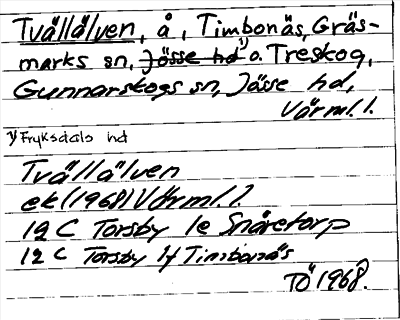 Tvällälven, å, Timbonäs, Gräs-
marks sn, Jösse hd 1) o. Treskog,
Gunnarskogs sn, Jösse hd,
Värml. l.
1) Fryksdals hd
Tvällälven
ek (1968) Värml. l.
12 C Torsby 1e Snåretorp
12 C Torsby 1f Timbonäs
TÖ 1968.